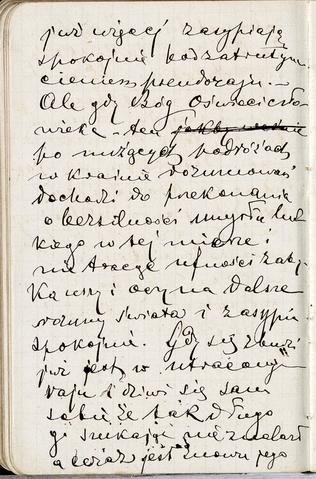 już więcej zasypiają
spokojnie pod zatrutym
cieniem pseudoraju. –
Ale gdy Bóg Oświeci czło
wieka – ten
po nużących podróżach
w krainie rozumowań
dochodzi do przekonania
o bezsilności umysłu ludz
kiego w tej mierze i
nie tracąc ufności zaty
ka uszy i oczy na dalsze
rozumy świata i zasypia
spokojnie. Gdy się zbudzi
już jest w utraconym
raju i dziwi się sam
sobie że tak długo
go szukając nie znalazł
a teraz jest znowu jego